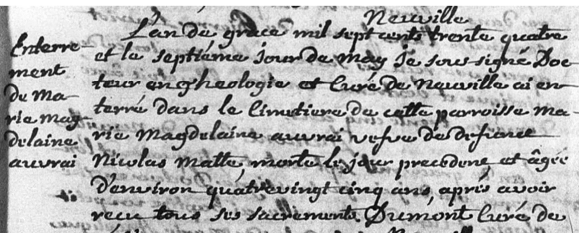 Neuville
Enterre-
ment
de Ma-
rie mag-
delaine
auvrai
L'an de grace mil sept cents trente quatre
et le septiéme jour de may Je sous-signé Doc-
teur en theologie et Curé de Neuville ai en-
terré dans le Cimetiere de cette parroisse Ma-
rie Magdelaine auvrai vefve de Defunct
Nicolas Matte morte le jour precedent et âgée
D'environ quatrevingt cinq ans, aprés avoir
reçu tous ses sacrements. Dumont Curé de